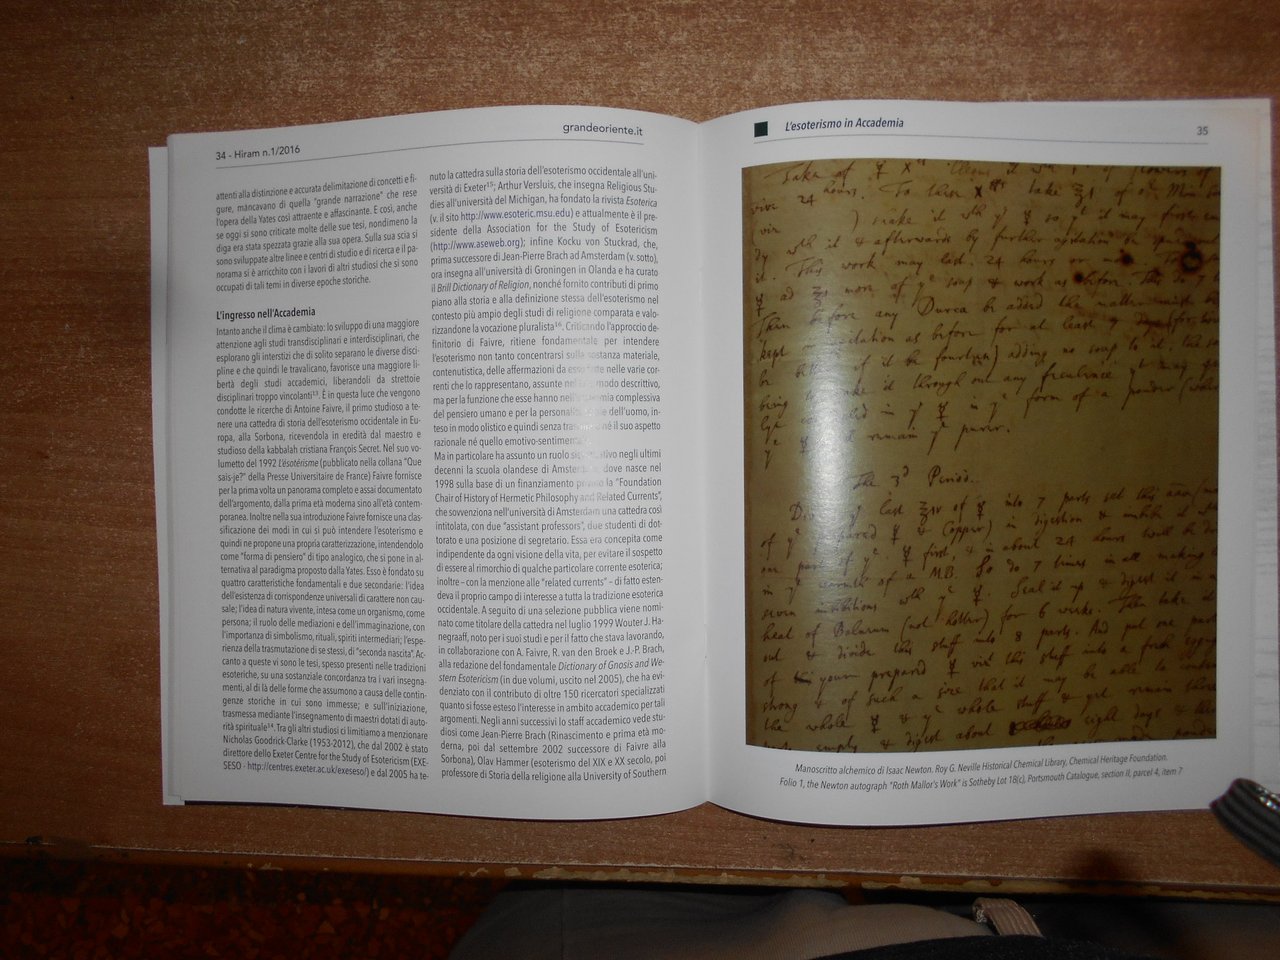 34 - Hiram n.1/2016
grandeoriente.it
attenti alla distinzione e accurata delimitazione di concetti e fi-
gure, mancavano di quella "grande narrazione" che rese
l'opera della Yates così attraente e affascinante. E così, anche
se oggi si sono criticate molte delle sue tesi, nondimeno la
diga era stata spezzata grazie alla sua opera. Sulla sua scia si
sono sviluppate altre linee e centri di studio e di ricerca e il pa-
norama si è arricchito con i lavori di altri studiosi che si sono
occupati di tali temi in diverse epoche storiche.
L'ingresso nell'Accademia
Intanto anche il clima è cambiato: lo sviluppo di una maggiore
attenzione agli studi transdisciplinari e interdisciplinari, che
esplorano gli interstizi che di solito separano le diverse disci-
pline e che quindi le travalicano, favorisce una maggiore li-
bertà degli studi accademici, liberandoli da strettoie
disciplinari troppo vincolanti¹³. È in questa luce che vengono
condotte le ricerche di Antoine Faivre, il primo studioso a te-
nere una cattedra di storia dell'esoterismo occidentale in Eu-
ropa, alla Sorbona, ricevendola in eredità dal maestro e
studioso della kabbalah cristiana François Secret. Nel suo vo-
lumetto del 1992 L'ésotérisme (pubblicato nella collana "Que
sais-je?" della Presse Universitaire de France) Faivre fornisce
per la prima volta un panorama completo e assai documentato
dell'argomento, dalla prima età moderna sino all'età contem-
poranea. Inoltre nella sua introduzione Faivre fornisce una clas-
sificazione dei modi in cui si può intendere l'esoterismo e
quindi ne propone una propria caratterizzazione, intendendolo
come "forma di pensiero" di tipo analogico, che si pone in al-
ternativa al paradigma proposto dalla Yates. Esso è fondato su
quattro caratteristiche fondamentali e due secondarie: l'idea
dell'esistenza di corrispondenze universali di carattere non cau-
sale; l'idea di natura vivente, intesa come un organismo, come
persona; il ruolo delle mediazioni e dell'immaginazione, con
l'importanza di simbolismo, rituali, spiriti intermediari; l'espe-
rienza della trasmutazione di se stessi, di "seconda nascita". Ac-
canto a queste vi sono le tesi, spesso presenti nelle tradizioni
esoteriche, su una sostanziale concordanza tra i vari insegna-
menti, al di là delle forme che assumono a causa delle contin-
genze storiche in cui sono immesse; e sull'iniziazione,
trasmessa mediante l'insegnamento di maestri dotati di auto-
rità spirituale¹⁴. Tra gli altri studiosi ci limitiamo a menzionare
Nicholas Goodrick-Clarke (1953-2012), che dal 2002 è stato
direttore dello Exeter Centre for the Study of Esotericism (EXE-
SESO - http://centres.exeter.ac.uk/exeseso/) e dal 2005 ha te-
nuto la cattedra sulla storia dell'esoterismo occidentale all'uni-
versità di Exeter¹⁵; Arthur Versluis, che insegna Religious Stu-
dies all'università del Michigan, ha fondato la rivista Esoterica
(v. il sito http://www.esoteric.msu.edu) e attualmente è il pre-
sidente della Association for the Study of Esotericism
(http://www.aseweb.org); infine Kocku von Stuckrad, che,
prima successore di Jean-Pierre Brach ad Amsterdam (v. sotto),
ora insegna all'università di Groningen in Olanda e ha curato
il Brill Dictionary of Religion, nonché fornito contributi di primo
piano alla storia e alla definizione stessa dell'esoterismo nel
contesto più ampio degli studi di religione comparata e valo-
rizzandone la vocazione pluralista¹⁶. Criticando l'approccio de-
finitorio di Faivre, ritiene fondamentale per intendere
l'esoterismo non tanto concentrarsi sulla sostanza materiale,
contenutistica, delle affermazioni da esso fatte nelle varie cor-
renti che lo rappresentano, assunte nel loro modo descrittivo,
ma per la funzione che esse hanno nell'economia complessiva
del pensiero umano e per la dell'uomo, in-
teso in modo olistico e quindi senza né il suo aspetto
razionale né quello emotivo-sentimentale.
Ma in particolare ha assunto un ruolo significativo negli ultimi
decenni la scuola olandese di Amsterdam, dove nasce nel
1998 sulla base di un finanziamento privato la "Foundation
Chair of History of Hermetic Philosophy and Related Currents",
che sovvenziona nell'università di Amsterdam una cattedra così
intitolata, con due "assistant professors", due studenti di dot-
torato e una posizione di segretario. Essa era concepita come
indipendente da ogni visione della vita, per evitare il sospetto
di essere al rimorchio di qualche particolare corrente esoterica;
inoltre – con la menzione alle "related currents" – di fatto esten-
deva il proprio campo di interesse a tutta la tradizione esoterica
occidentale. A seguito di una selezione pubblica viene nomi-
nato come titolare della cattedra nel luglio 1999 Wouter J. Ha-
negraaff, noto per i suoi studi e per il fatto che stava lavorando,
in collaborazione con A. Faivre, R. van den Broek e J.-P. Brach,
alla redazione del fondamentale Dictionary of Gnosis and We-
stern Esotericism (in due volumi, uscito nel 2005), che ha evi-
denziato con il contributo di oltre 150 ricercatori specializzati
quanto si fosse esteso l'interesse in ambito accademico per tali
argomenti. Negli anni successivi lo staff accademico vede stu-
diosi come Jean-Pierre Brach (Rinascimento e prima età mo-
derna, poi dal settembre 2002 successore di Faivre alla
Sorbona), Olav Hammer (esoterismo del XIX e XX secolo, poi
professore di Storia della religione alla University of Southern
L'esoterismo in Accademia
35
hours. To then take
shake it wth yᵉ so yᵗ it may
dy wth it & afterwards by further agitation
it. This work may last 24 hours or more.
more of yᵉ soup & work as before.
Then before any Ducca be added the matter must be
kept in agitation as before for at least
if it be fourteen) adding no soup to it.
it through out any
in yᵉ form of a powder
remain yᵉ purer.
The 3ᵈ Period.
last of into 7 parts set this
of yᵉ prepared & (copper) in digestion & imbibe it
one part of yᵉ first, & in about 24 hours will be
of a M.B. So do 7 times in all making
seven imbibitions wth yᵉ Seal it up & digest it in a
heat of Balneum (not hotter) for 6 weeks. Then take it
out & divide this stuff into 8 parts. And put one part
of your prepared wth this stuff into a fresh egg
strong & of such a size that it may be able to
the whole & yᵉ whole stuff & yet remain
empty & digest about eight days &
Manoscritto alchemico di Isaac Newton. Roy G. Neville Historical Chemical Library, Chemical Heritage Foundation.
Folio 1, the Newton autograph "Roth Mallor's Work" is Sotheby Lot 18(c), Portsmouth Catalogue, section II, parcel 4, item 7